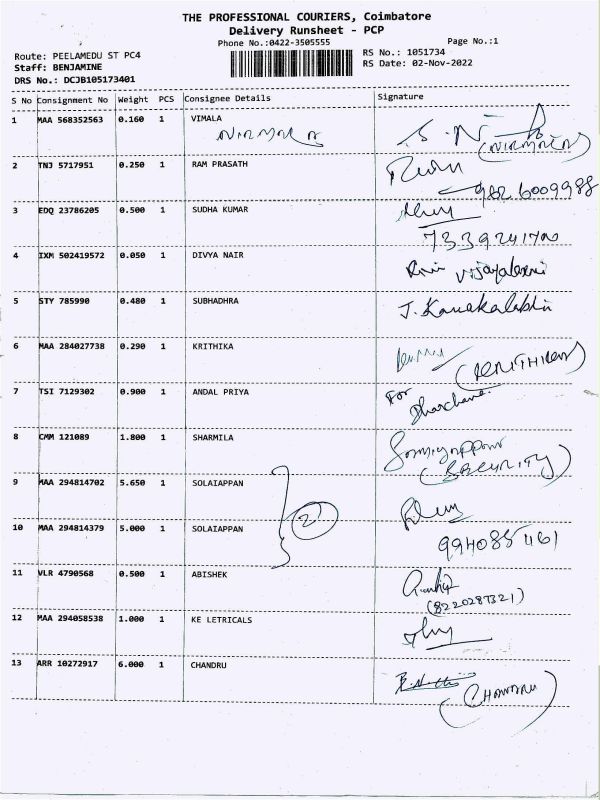 THE PROFESSIONAL COURIERS, Coimbatore
Delivery Runsheet - PCP
Phone No.:0422-3505555
Page No.:1
Route: PEELAMEDU ST PC4
Staff: BENJAMINE
DRS No.: DCJB105173401
RS No.: 1051734
RS Date: 02-Nov-2022
S No Consignment No Weight PCS Consignee Details Signature
1 MAA 568352563 0.160 1 VIMALA
NIRMALA
(NIRMALA)
2 TNJ 5717951 0.250 1 RAM PRASATH
982 6009988
3 EDQ 23786205 0.500 1 SUDHA KUMAR
4 IXM 502419572 0.050 1 DIVYA NAIR
5 STY 785990 0.480 1 SUBHADHRA
6 MAA 284027738 0.290 1 KRITHIKA
7 TSI 7129302 0.900 1 ANDAL PRIYA
For
8 CMM 121089 1.800 1 SHARMILA
(SECURITY)
9 MAA 294814702 5.650 1 SOLAIAPPAN
2
10 MAA 294814379 5.000 1 SOLAIAPPAN
994085461
11 VLR 4790568 0.500 1 ABISHEK
(8220287321)
12 MAA 294058538 1.000 1 KE LETRICALS
13 ARR 10272917 6.000 1 CHANDRU
(CHANDRU)